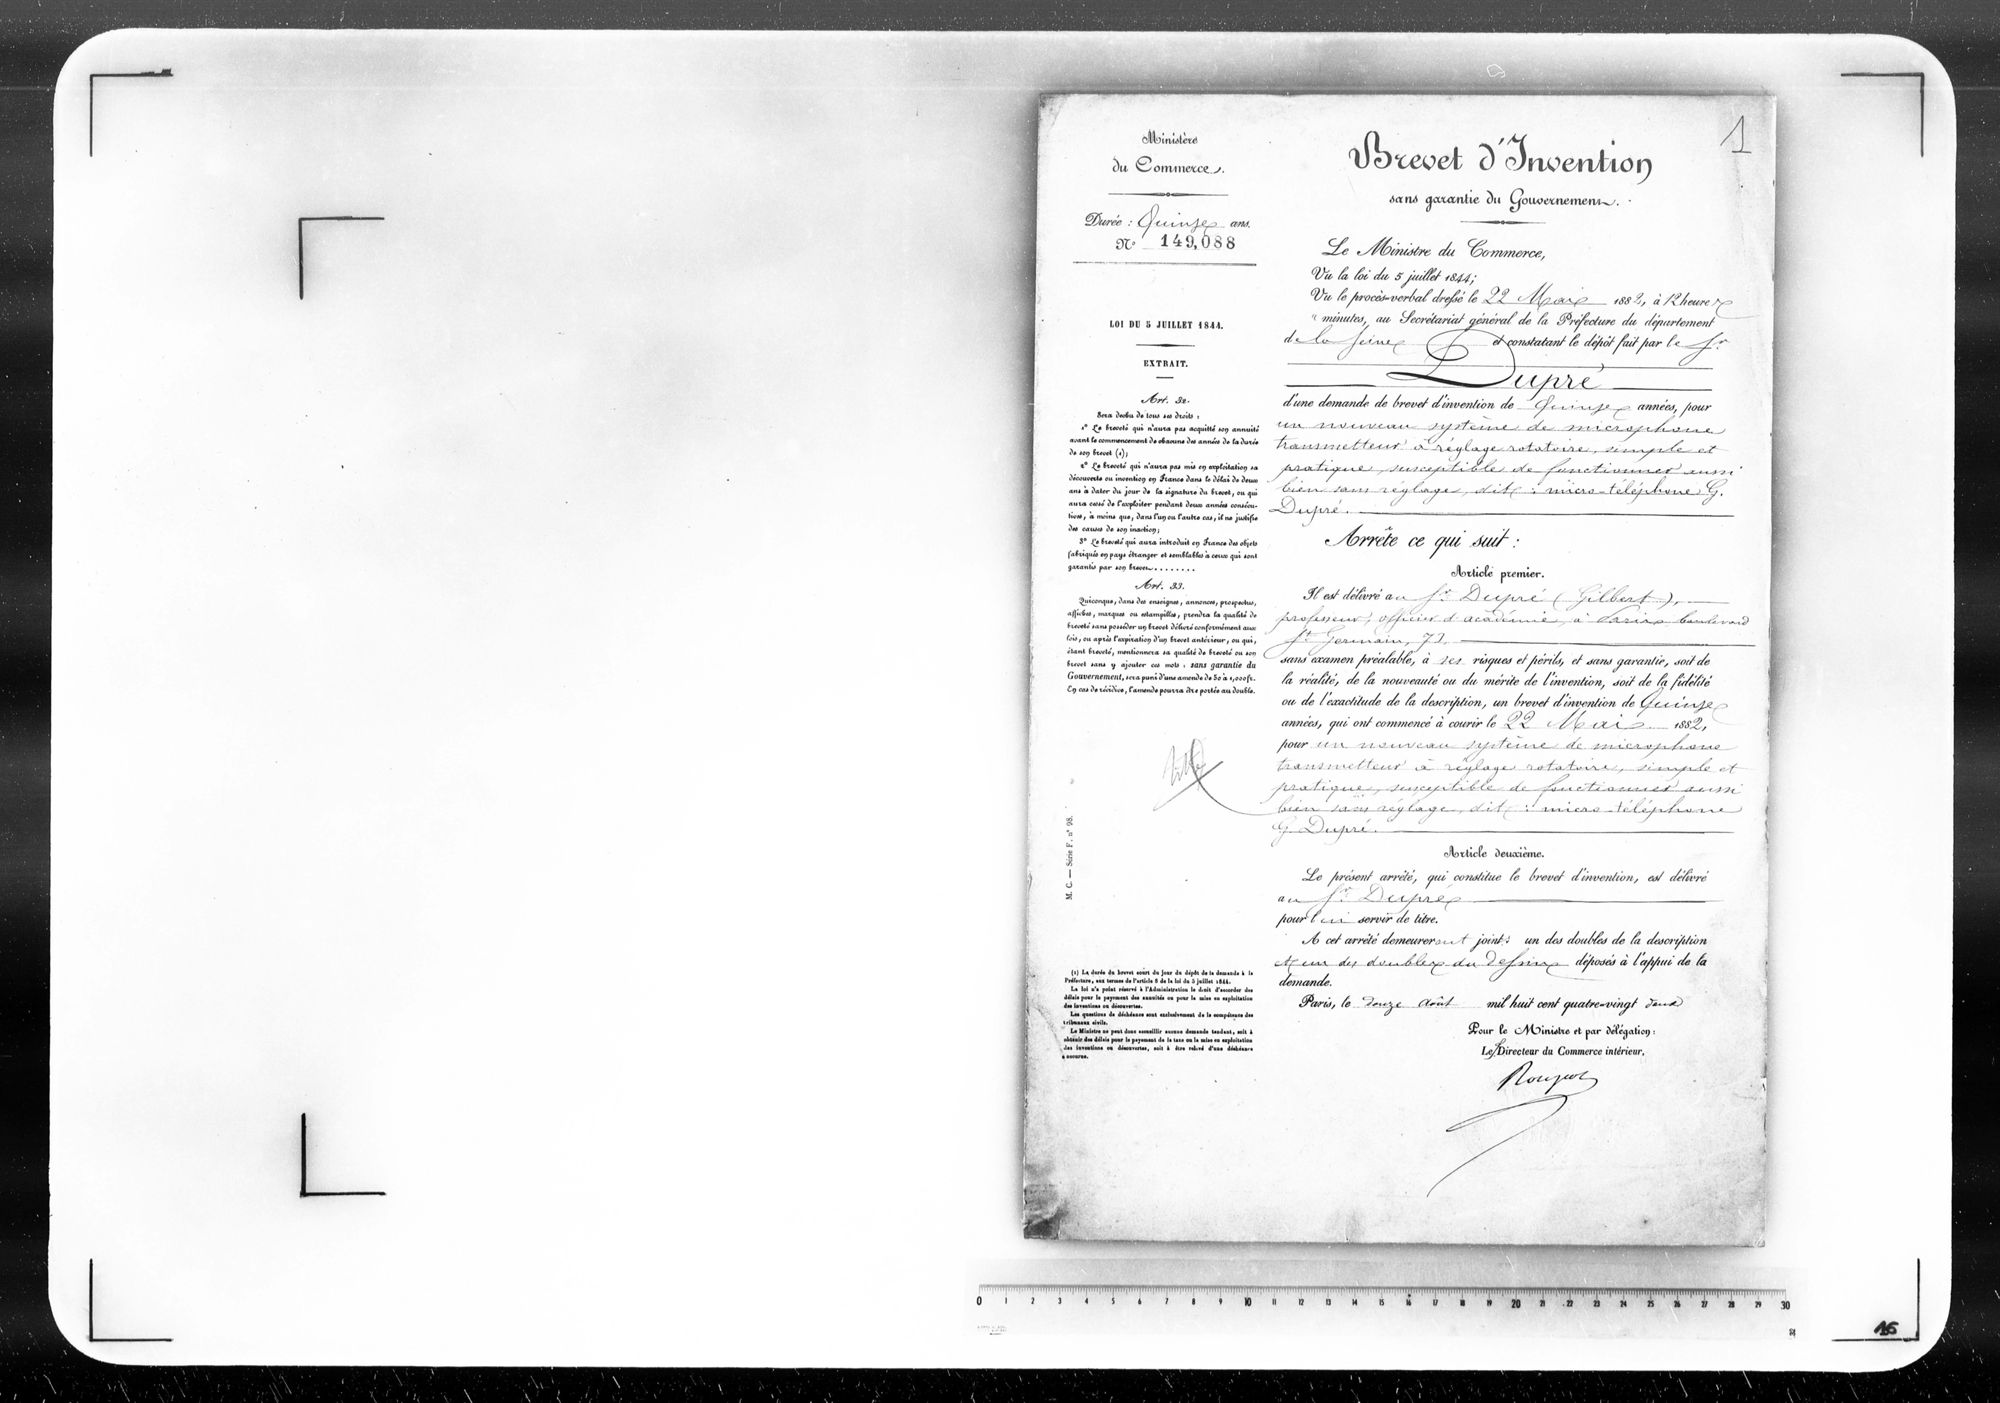 1
Ministère
du Commerce.
Durée : Quinze ans.
N° 149,088
LOI DU 5 JUILLET 1844.
EXTRAIT.
Art. 32.
Sera déchu de tous ses droits :
1° Le breveté qui n'aura pas acquitté son annuité
avant le commencement de chacune des années de la durée
de son brevet (1);
2° Le breveté qui n'aura pas mis en exploitation sa
découverte ou invention en France dans le délai de deux
ans à dater du jour de la signature du brevet, ou qui
aura cessé de l'exploiter pendant deux années consécu-
tives, à moins que, dans l'un ou l'autre cas, il ne justifie
des causes de son inaction;
3° Le breveté qui aura introduit en France des objets
fabriqués en pays étranger et semblables à ceux qui sont
garantis par son brevet........
Art. 33.
Quiconque, dans des enseignes, annonces, prospectus,
affiches, marques ou estampilles, prendra la qualité de
breveté sans posséder un brevet délivré conformément aux
lois, ou après l'expiration d'un brevet antérieur, ou qui,
étant breveté, mentionnera sa qualité de breveté ou son
brevet sans y ajouter ces mots : sans garantie du
Gouvernement, sera puni d'une amende de 50 à 1,000 fr.
En cas de récidive, l'amende pourra être portée au double.
M. C. — Série F. n° 98.
(1) La durée du brevet court du jour du dépôt de la demande à la
Préfecture, aux termes de l'article 8 de la loi du 5 juillet 1844.
La loi n'a point réservé à l'Administration le droit d'accorder des
délais pour le payement des annuités ou pour la mise en exploitation
des inventions ou découvertes.
Les questions de déchéance sont exclusivement de la compétence des
tribunaux civils.
Le Ministre ne peut donc accueillir aucune demande tendant, soit à
obtenir des délais pour le payement de la taxe ou la mise en exploitation
des inventions ou découvertes, soit à être relevé d'une déchéance
encourue.
Brevet d'Invention
sans garantie du Gouvernement.
Le Ministre du Commerce,
Vu la loi du 5 juillet 1844;
Vu le procès-verbal dressé le 22 Mai 1882, à 12 heures
" minutes, au Secrétariat général de la Préfecture du département
de la Seine et constatant le dépôt fait par le Sr
Dupré
d'une demande de brevet d'invention de Quinze années, pour
un nouveau système de microphone
transmetteur à réglage rotatoire, simple et
pratique, susceptible de fonctionner aussi
bien sans réglage, dit : micro-téléphone G.
Dupré.
Arrête ce qui suit :
Article premier.
Il est délivré au Sr Dupré (Gilbert),
professeur, officier d'académie, à Paris boulevard
St Germain, 71.
sans examen préalable, à ses risques et périls, et sans garantie, soit de
la réalité, de la nouveauté ou du mérite de l'invention, soit de la fidélité
ou de l'exactitude de la description, un brevet d'invention de Quinze
années, qui ont commencé à courir le 22 Mai 1882,
pour un nouveau système de microphone
transmetteur à réglage rotatoire, simple et
pratique, susceptible de fonctionner aussi
bien sans réglage, dit : micro-téléphone
G. Dupré.
Article deuxième.
Le présent arrêté, qui constitue le brevet d'invention, est délivré
au Sr Dupré
pour lui servir de titre.
A cet arrêté demeureront joints un des doubles de la description
et un des doubles du dessin déposés à l'appui de la
demande.
Paris, le douze août mil huit cent quatre-vingt deux
Pour le Ministre et par délégation :
Le Directeur du Commerce intérieur,
0 1 2 3 4 5 6 7 8 9 10 11 12 13 14 15 16 17 18 19 20 21 22 23 24 25 26 27 28 29 30
16